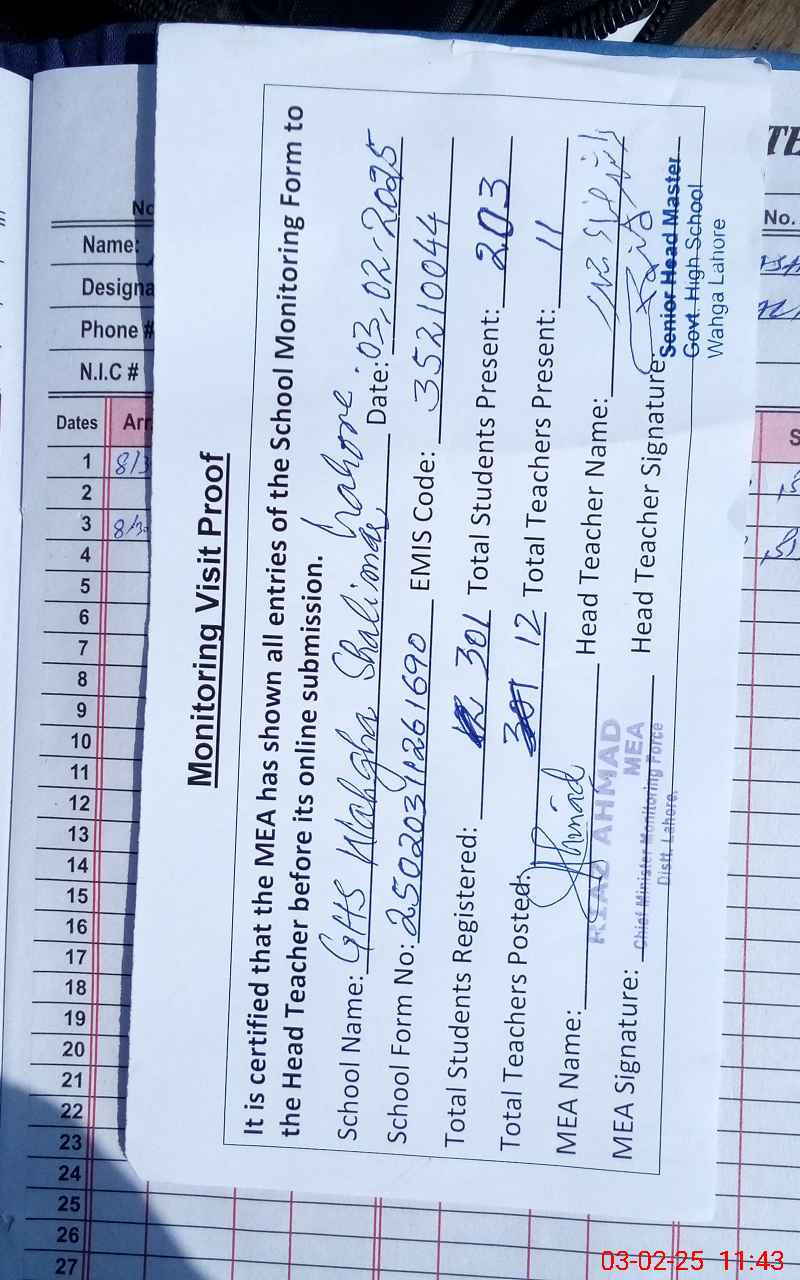 Monitoring Visit Proof
It is certified that the MEA has shown all entries of the School Monitoring Form to
the Head Teacher before its online submission.
School Name: GHS Wahgha Shalimar Lahore. Date: 03-02-2025
School Form No: 25020311261690 EMIS Code: 35210044
Total Students Registered: 301 Total Students Present: 203
Total Teachers Posted: 12 Total Teachers Present: 11
MEA Name: Ahmad Head Teacher Name:
RIAZ AHMAD
MEA
Chief Minister Monitoring Force
Distt. Lahore.
MEA Signature: Head Teacher Signature:
Senior Head Master
Govt. High School
Wahga Lahore
Name:
Phone #
N.I.C #
No.
Dates
1 8/3
2
3
4
5
6
7
8
9
10
11
12
13
14
15
16
17
18
19
20
21
22
23
24
25
26
27
03-02-25 11:43